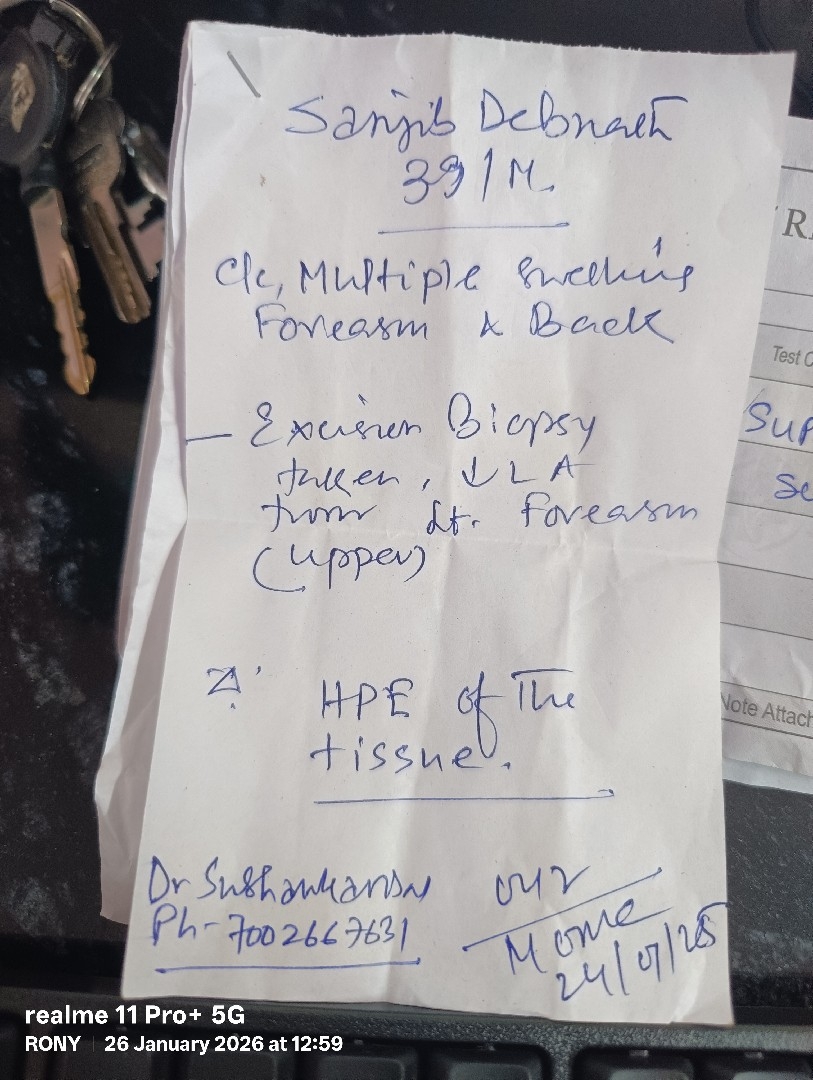 Sanjib Debnath
39/M.
C/c, Multiple Swelling
Forearm & Back
— Excision Biopsy
taken, ↓ LA
from Lt. Forearm
(upper)
HPE of The
tissue.
Dr Sushankar
Ph- 7002667631
24/01/25
R
Test
Sup
Se
Note Attach
realme 11 Pro+ 5G
RONY | 26 January 2026 at 12:59